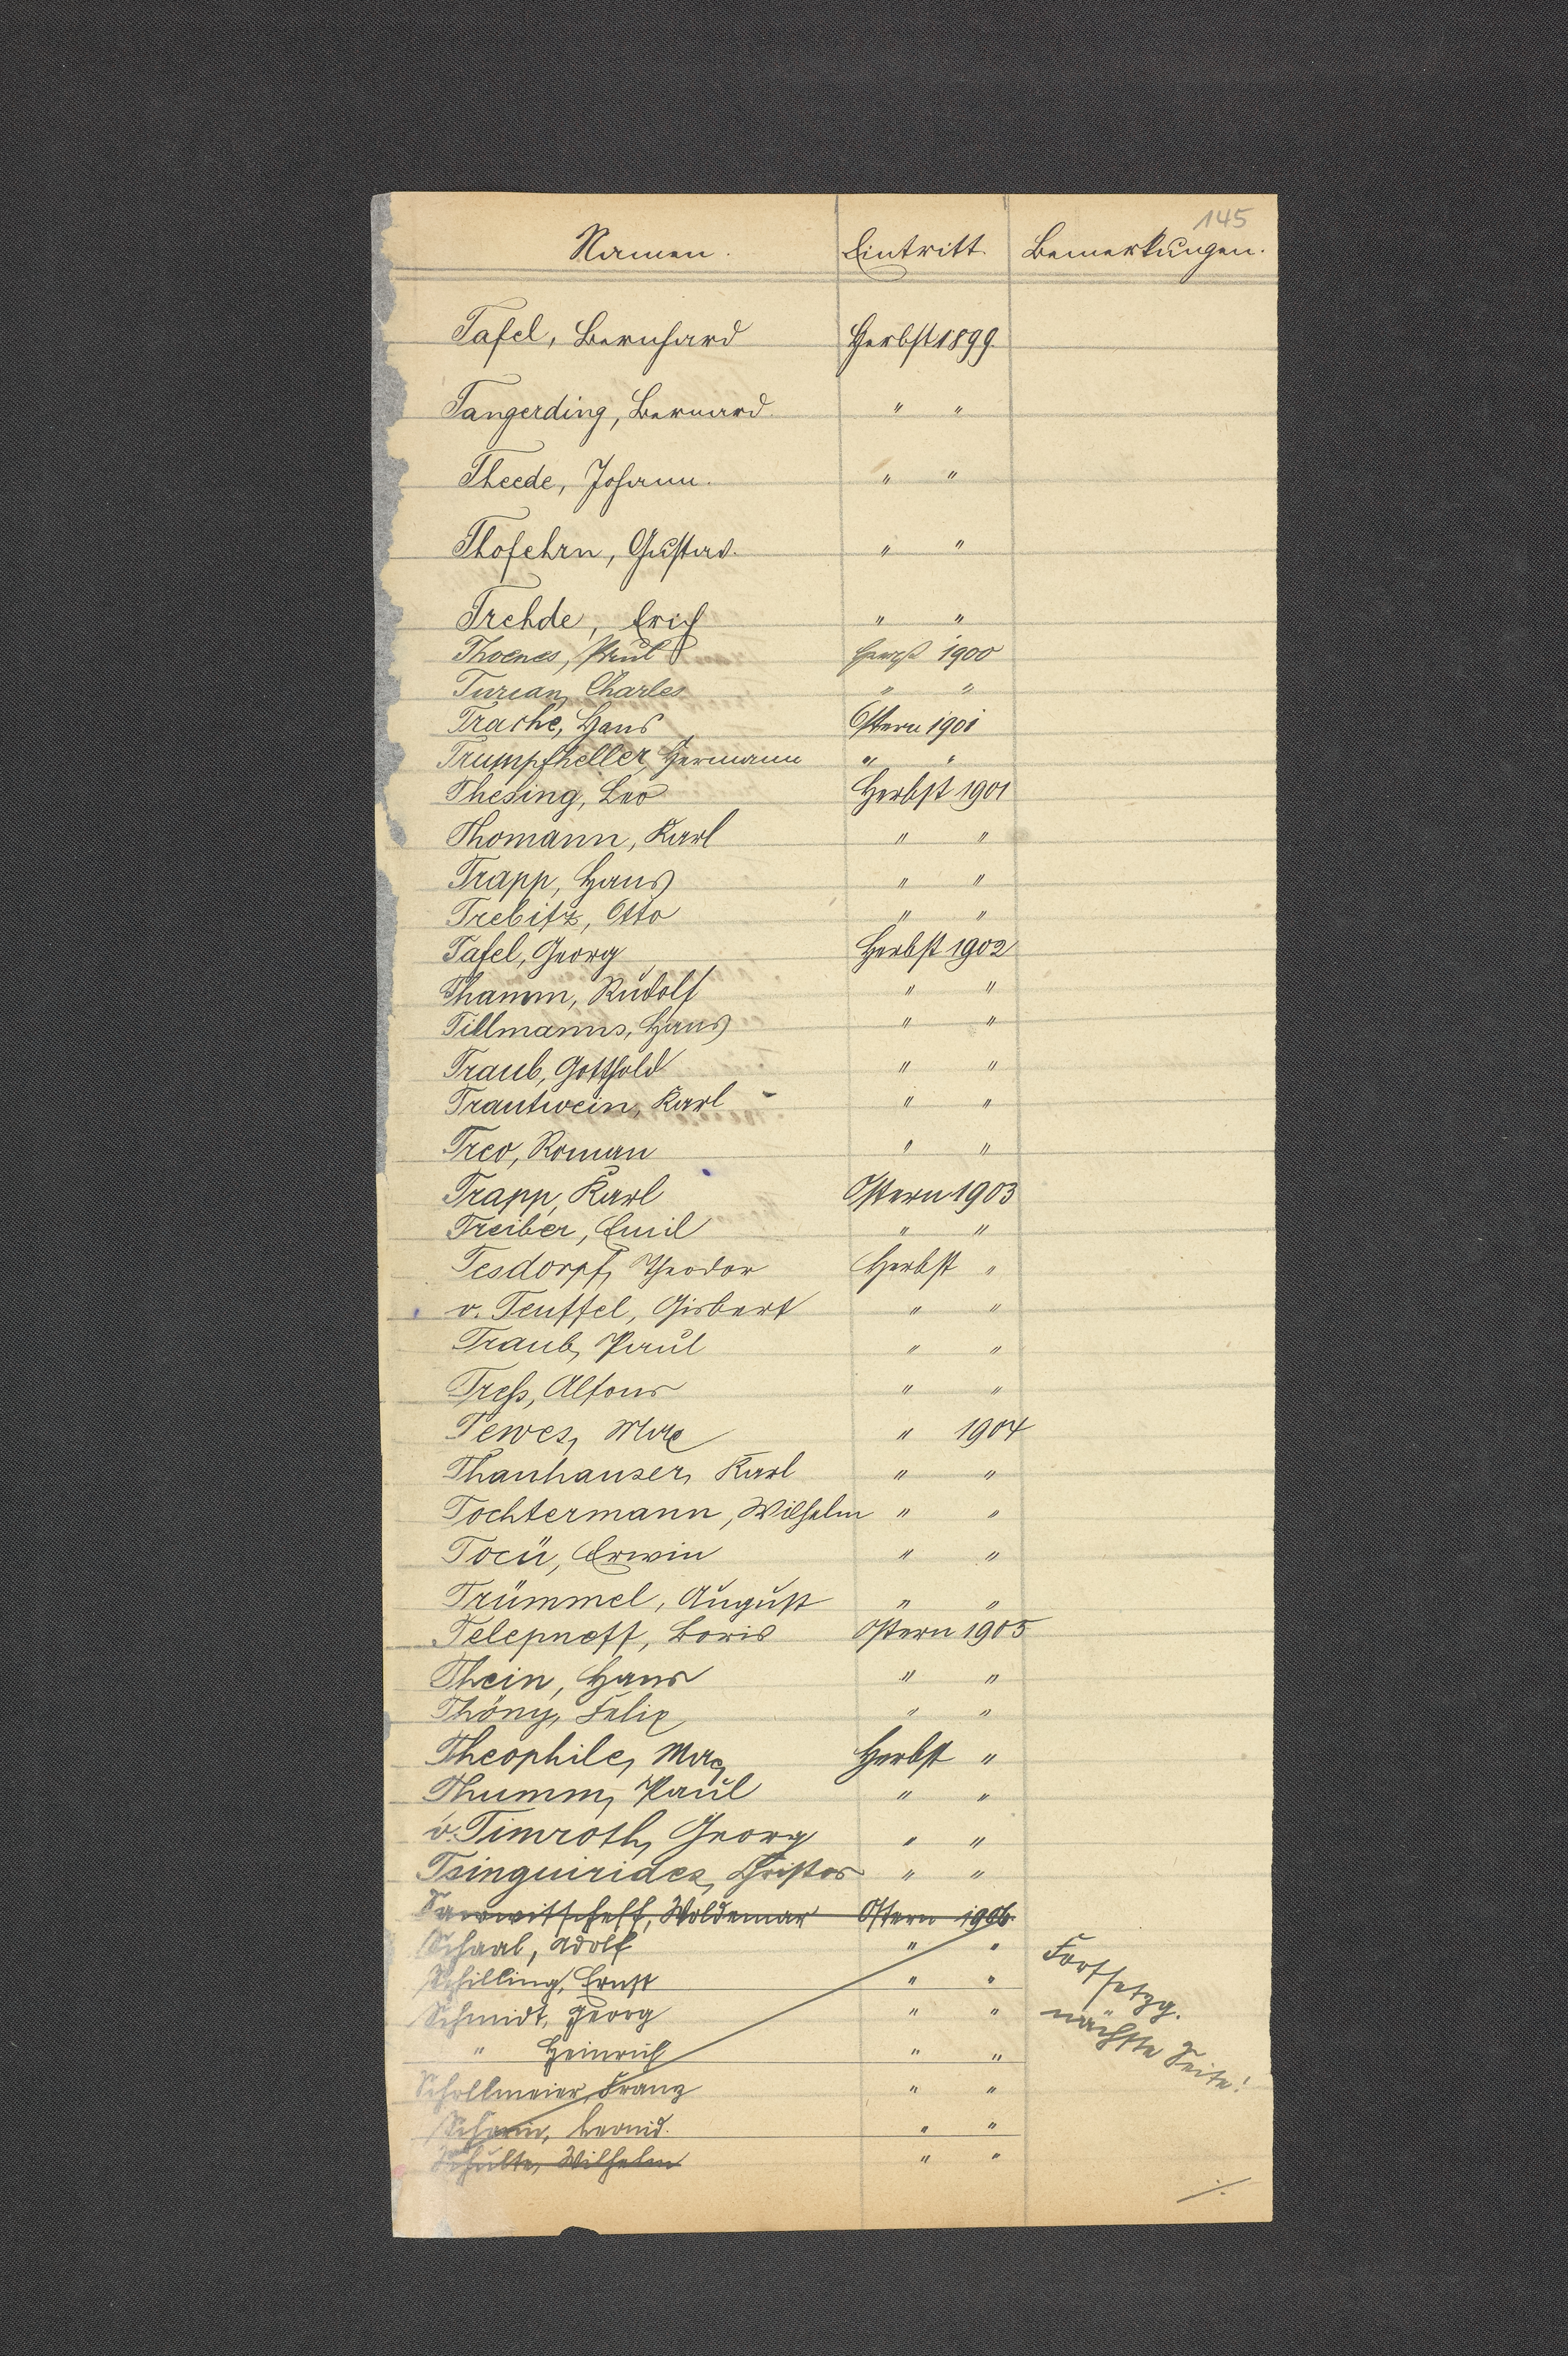 145
Namen. Eintritt. Bemerkungen.
Tafel, Bernhard Herbst 1899.
Tangerding, Bernard. " "
Theede, Johann. " "
Thofehrn, Gustav. " "
Trehde, Erich " "
Thoenes, Paul Herbst 1900
Turian, Charles " "
Trache, Hans Ostern 1901
Trumpfheller, Hermann " "
Thesing, Leo Herbst 1901
Thomann, Karl " "
Trapp, Hans " "
Trebitz, Otto " "
Tafel, Georg Herbst 1902
Thamm, Rudolf " "
Tillmanns, Hans " "
Traub, Gotthold " "
Trautwein, Karl " "
Treo, Roman " "
Trapp, Karl Ostern 1903
Treiber, Emil " "
Tesdorpf, Theodor Herbst "
v. Teuffel, Gisbert " "
Traub, Paul " "
Treß, Alfons " "
Tewes, Max " 1904
Thanhauser, Karl " "
Tochtermann, Wilhelm " "
Tocü, Erwin " "
Trümmel, August " "
Telepneff, Boris Ostern 1905
Thein, Hans " "
Thöny, Felix " "
Theophile, Max Herbst "
Thumm, Paul " "
v. Timroth, Georg " "
Tsinguirides, Christos " "
Woldemar Ostern 1906.
Schaal, Adolf " "
Schilling, Ernst " "
Schmidt, Georg " "
" Heinrich " "
Schollmeier, Franz " "
Leonid. " "
Schulte, Wilhelm " "
Fortsetzg.
nächste Seite!
./.